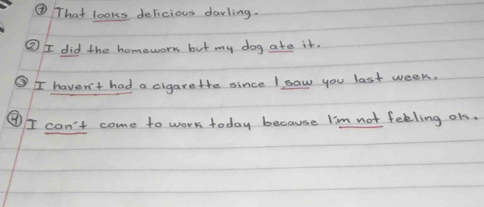 ① That looks delicious darling.
② I did the homework but my dog ate it.
③ I haven't had a cigarette since I saw you last week.
④ I can't come to work today because I'm not feeling ok.